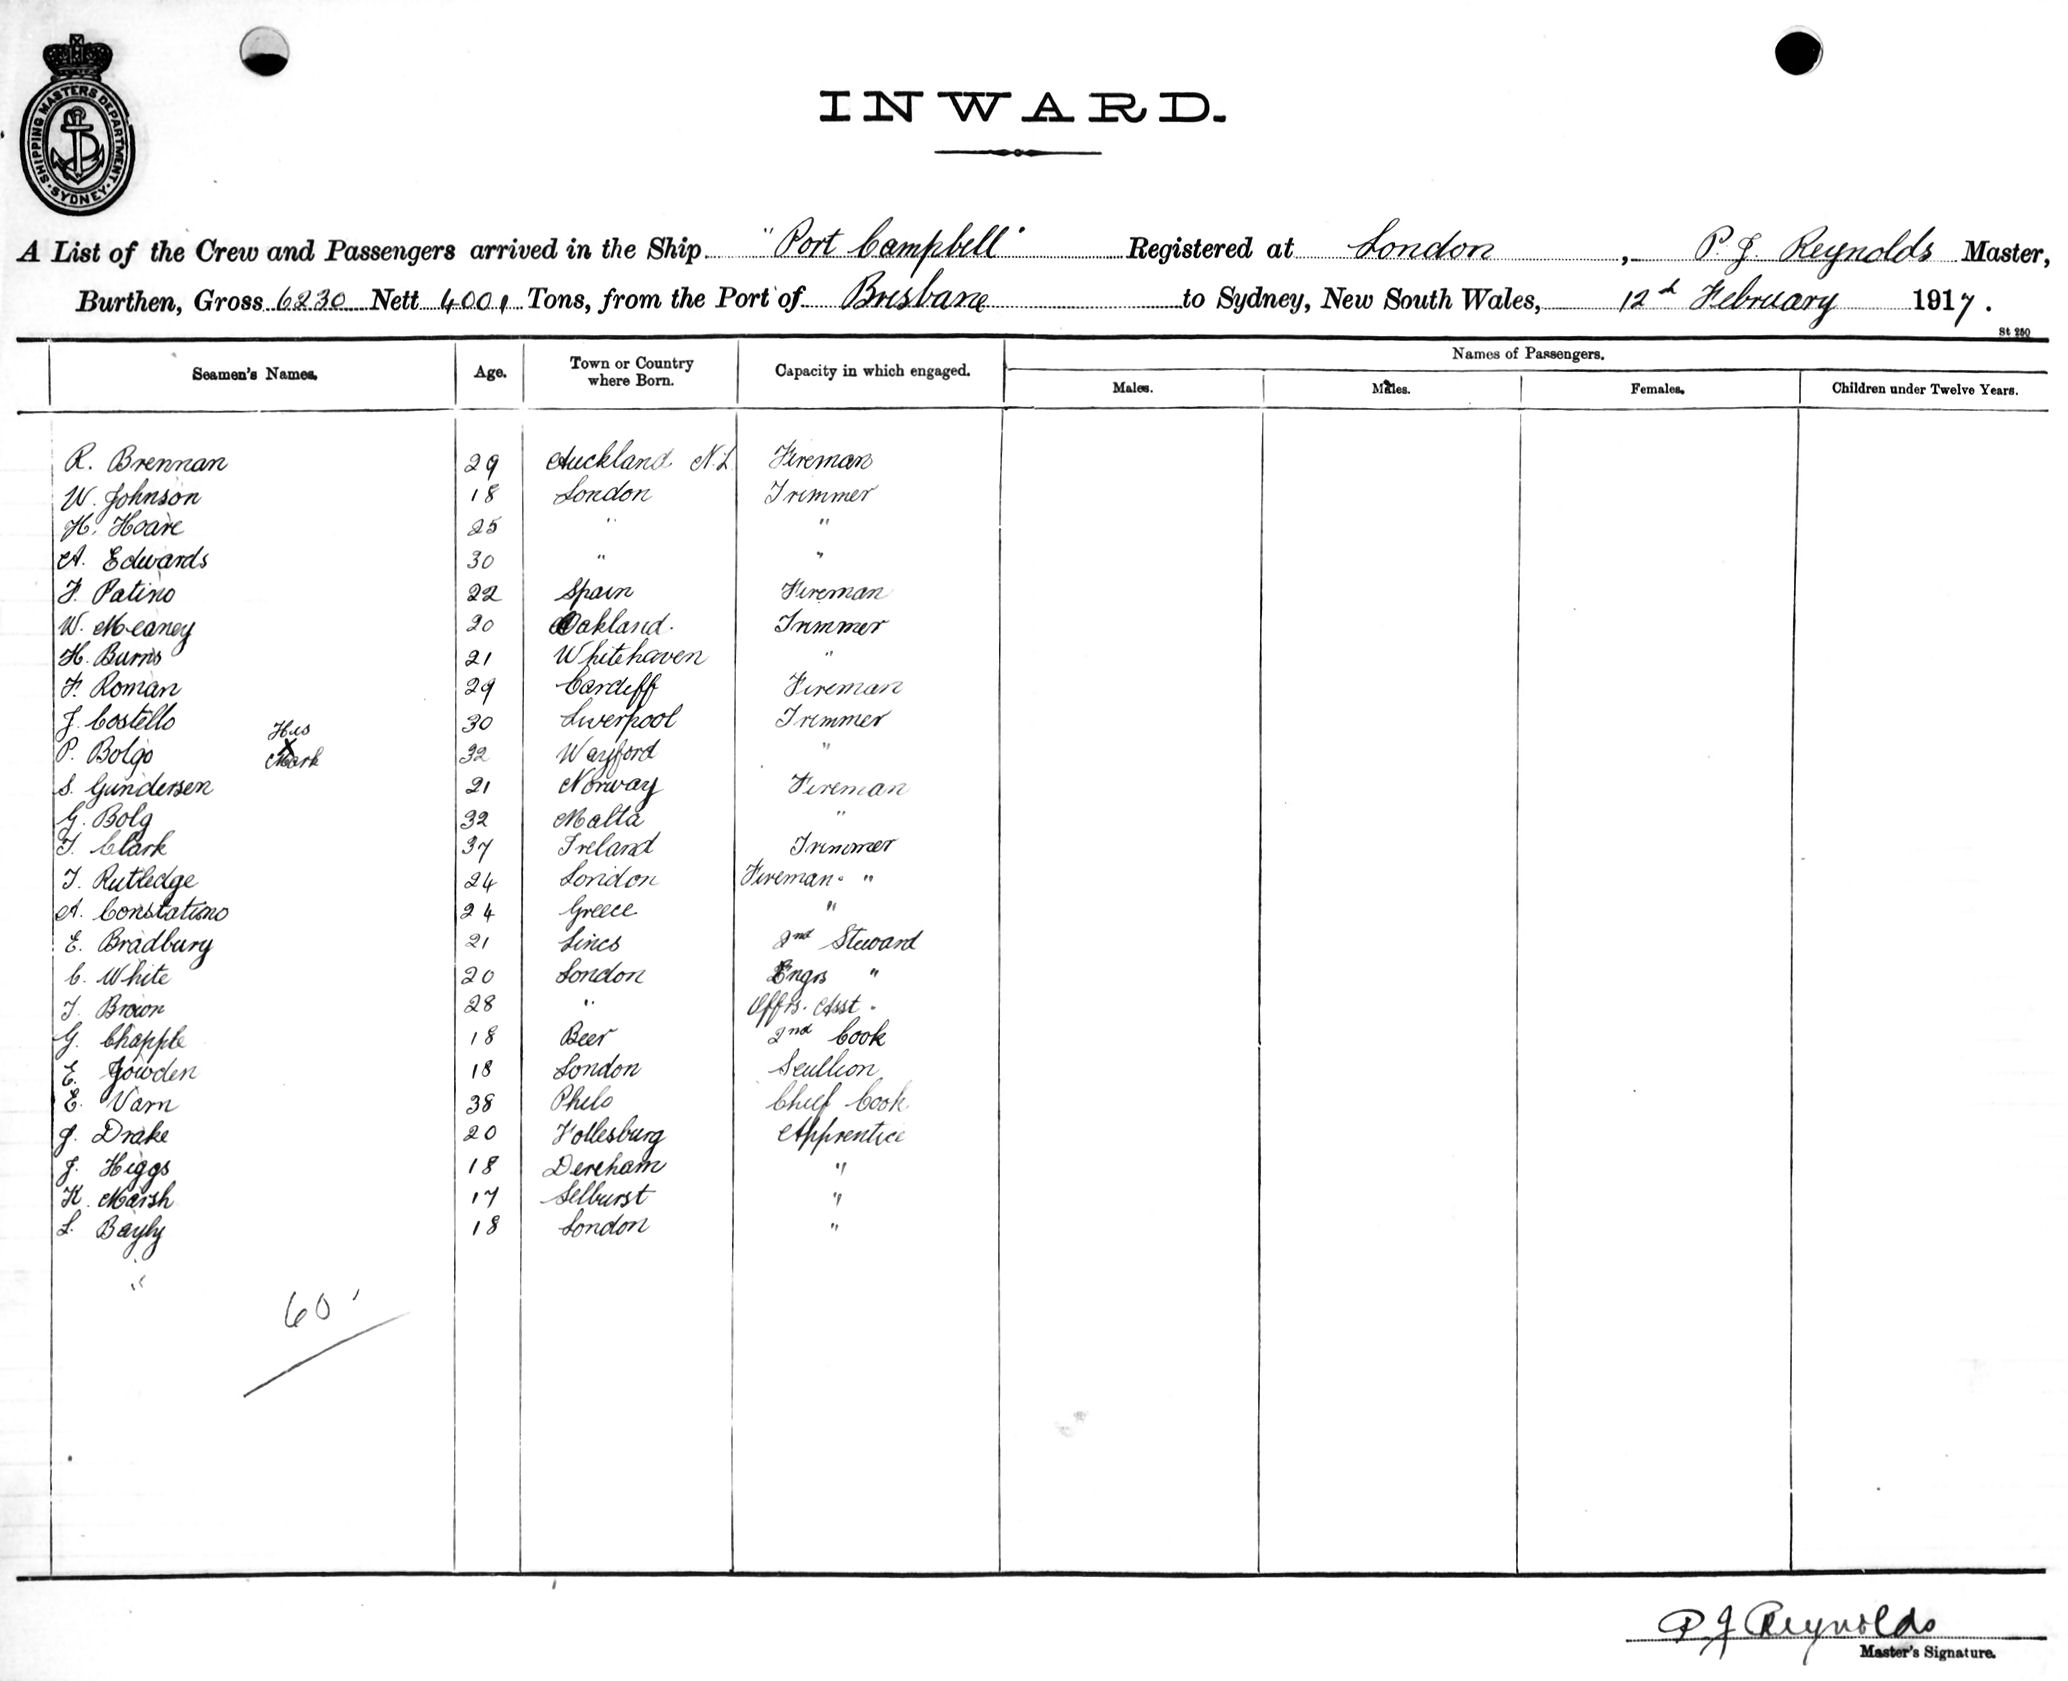 SHIPPING MASTERS DEPARTMENT
SYDNEY
INWARD.
A List of the Crew and Passengers arrived in the Ship "Port Campbell" Registered at London, P. J. Reynolds Master,
Burthen, Gross 6230 Nett 4001 Tons, from the Port of Brisbane to Sydney, New South Wales, 12d February 1917.
St 250
Seamen's Names. Age. Town or Country where Born. Capacity in which engaged. Names of Passengers.
Males. Males. Females. Children under Twelve Years.
R. Brennan 29 Auckland N.Z. Fireman
W. Johnson 18 London Trimmer
H. Hoare 25 " "
A. Edwards 30 " "
F. Patino 22 Spain Fireman
W. Meaney 20 Oakland. Trimmer
H. Burns 21 Whitehaven "
F. Roman 29 Cardiff Fireman
J. Costello 30 Liverpool Trimmer
P. Bolgo His X Mark 32 Wayford "
S. Gundersen 21 Norway Fireman
G. Bolg 32 Malta "
T. Clark 37 Ireland Trimmer
T. Rutledge 24 London Fireman "
A. Constatino 24 Greece "
E. Bradbury 21 Lincs 2nd Steward
C. White 20 London Engrs "
T. Brown 28 " Offrs. Asst "
G. Chapple 18 Beer 2nd Cook
E. Jowden 18 London Scullion
E. Varn 38 Phelo Chief Cook
J. Drake 20 Follesburg Apprentice
J. Higgs 18 Dereham "
K. Marsh 17 Selburst "
L. Bayly 18 London "
"
60
P J Reynolds
Master's Signature.